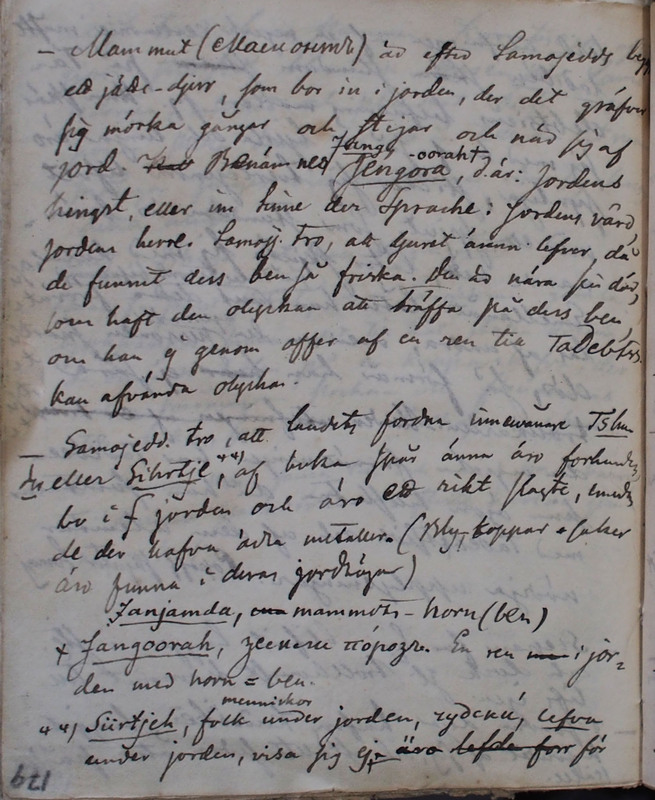 – Mammut (Мамонтъ) är efter Samojeders
ett jätte-djur, som bor in i jorden, der det gräfver
sig mörka gångar och stigar och när sig af
jord. Benämnes Jengora, d. är: jordens
Jang-ooraht
hingst, eller im Sinne der Sprache: jordens vård,
jordens herre. Samoj. tro, att djuret ännu lefver, då
de funnit dess ben så friska. Den är nära sin död,
som haft den olyckan att träffa på dess ben,
om han ej genom offer af en ren till Tadebtsi
kan afvända olyckan.
– Samojed. tro, att landets fordna innewånare Tshu-
der eller Sihrtje **), af hvilka spår ännu äro förhanden,
bo i jorden och äro ett rikt slägte, emedan
de der hafva ädla metaller. (Bly, koppar saker
äro funna i deras jordhögar)
Janjamda, mammots-horn (ben)
× Jangoorah, земской порозъ. En ren i jor-
den med horn = ben.
menniskor
**) Siirtjeh, folk under jorden, чудской, lefva
under jorden, visa sig ej äro lefde förr för
179